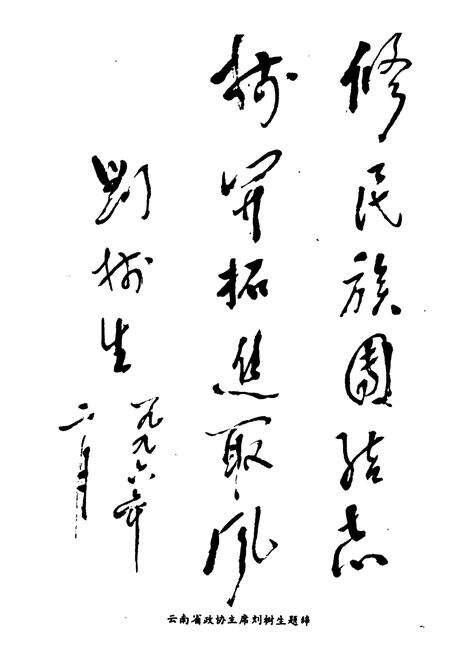 修民族團结志
树開拓進取风
劉树生
一九九六年
二月
云南省政协主席刘树生题辞